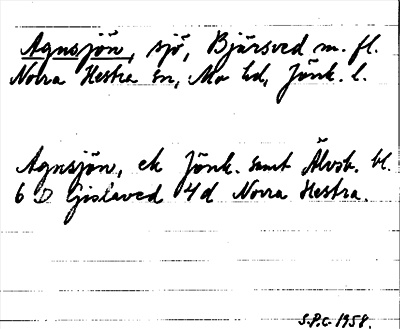 Agnsjön, sjö, Bjärsved m. fl.
Norra Hestra sn, Mo hd, Jönk. l.
Agnsjön, ek Jönk. samt Älvsb. bl.
6 D Gislaved 4d Norra Hestra.
S.P.C. 1958.